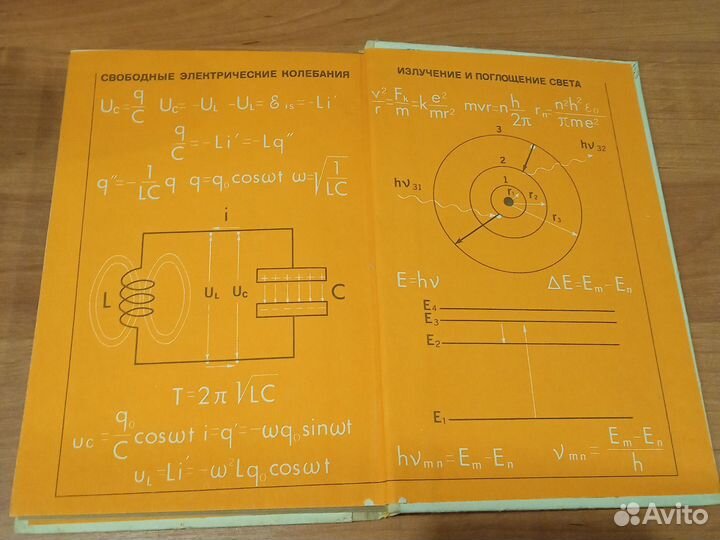 СВОБОДНЫЕ ЭЛЕКТРИЧЕСКИЕ КОЛЕБАНИЯ
U_C = q/C U_C = -U_L -U_L = ℰ_is = -Li'
q/C = -Li' = -Lq''
q'' = -1/LC q q = q₀cosωt ω = √(1/LC)
i
L U_L U_C C
+ + + + + +
- - - - - -
T = 2π√LC
u_C = q₀/C cosωt i = q' = -ωq₀sinωt
u_L = Li' = -ω²Lq₀cosωt
ИЗЛУЧЕНИЕ И ПОГЛОЩЕНИЕ СВЕТА
v²/r = F_k/m = k e²/mr² mvr = n h/2π r_n = n²h²ε₀/πme²
3
2
1
hν₃₂
hν₃₁
r₁ r₂
r₃
E = hν ΔE = E_m - E_n
E₄
E₃
E₂
E₁
hν_mn = E_m - E_n ν_mn = (E_m - E_n)/h
Avito